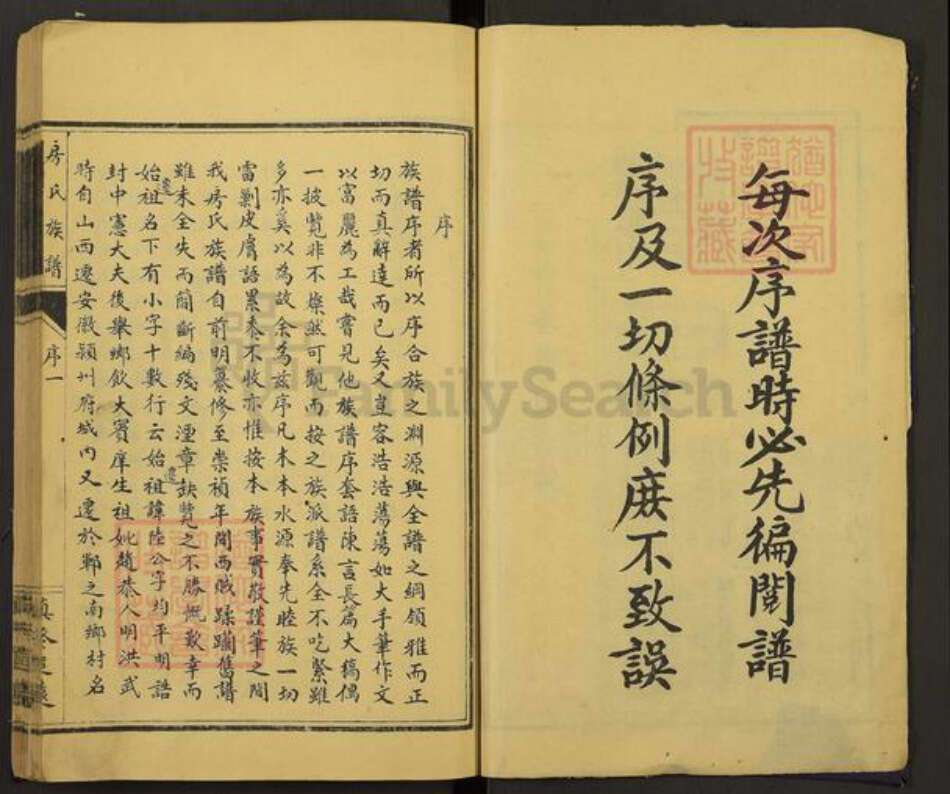 每次序譜時必先徧閱譜
序及一切條例庶不致誤
猶他家
譜學會
收藏
序
族譜序者所以序合族之淵源與全譜之綱領雅而正
切而真解達而已矣又豈容浩浩蕩蕩如大手筆作文
以富麗為工哉嘗見他族譜序套語陳言長篇大稿偶
一披覽非不燦然可觀而按之族派譜系全不吃緊雖
多亦奚以為故余為兹序凡木本水源奉先睦族一切
雷剿皮膚語累黍不收亦惟按本族事實敬謹筆之間
我房氏族譜自前明纂修至崇禎年間西賊蹂躪舊譜
雖未全失而簡斷編殘文湮章缺覽之不勝慨歎幸而
始遷祖名下有小字十數行云始遷祖諱陸公字均平明誥
封中憲大夫後舉鄉飲大賓庠生祖妣趙恭人明洪武
時自山西遷安徽潁州府城內又遷於鄴之南鄉村名
房氏族譜
序一
慎終追遠
FamilySearch